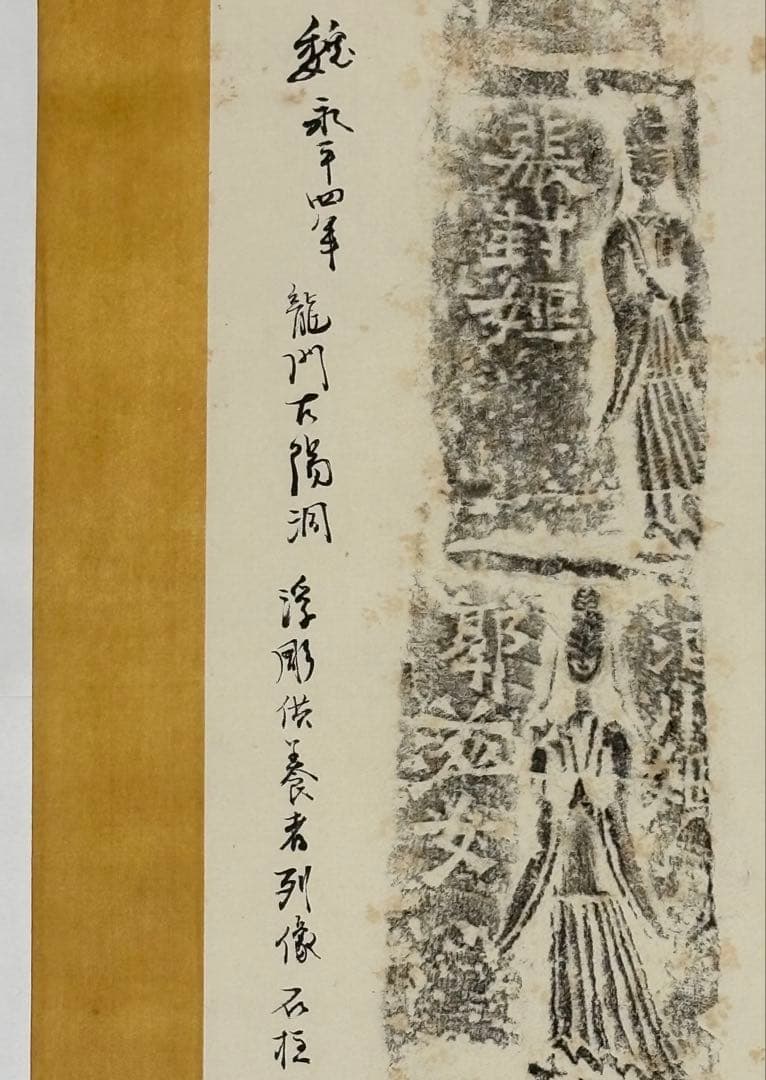 裴封姬
郭女
魏 永平四年 龍門古陽洞 浮彫供養者列像 石柱